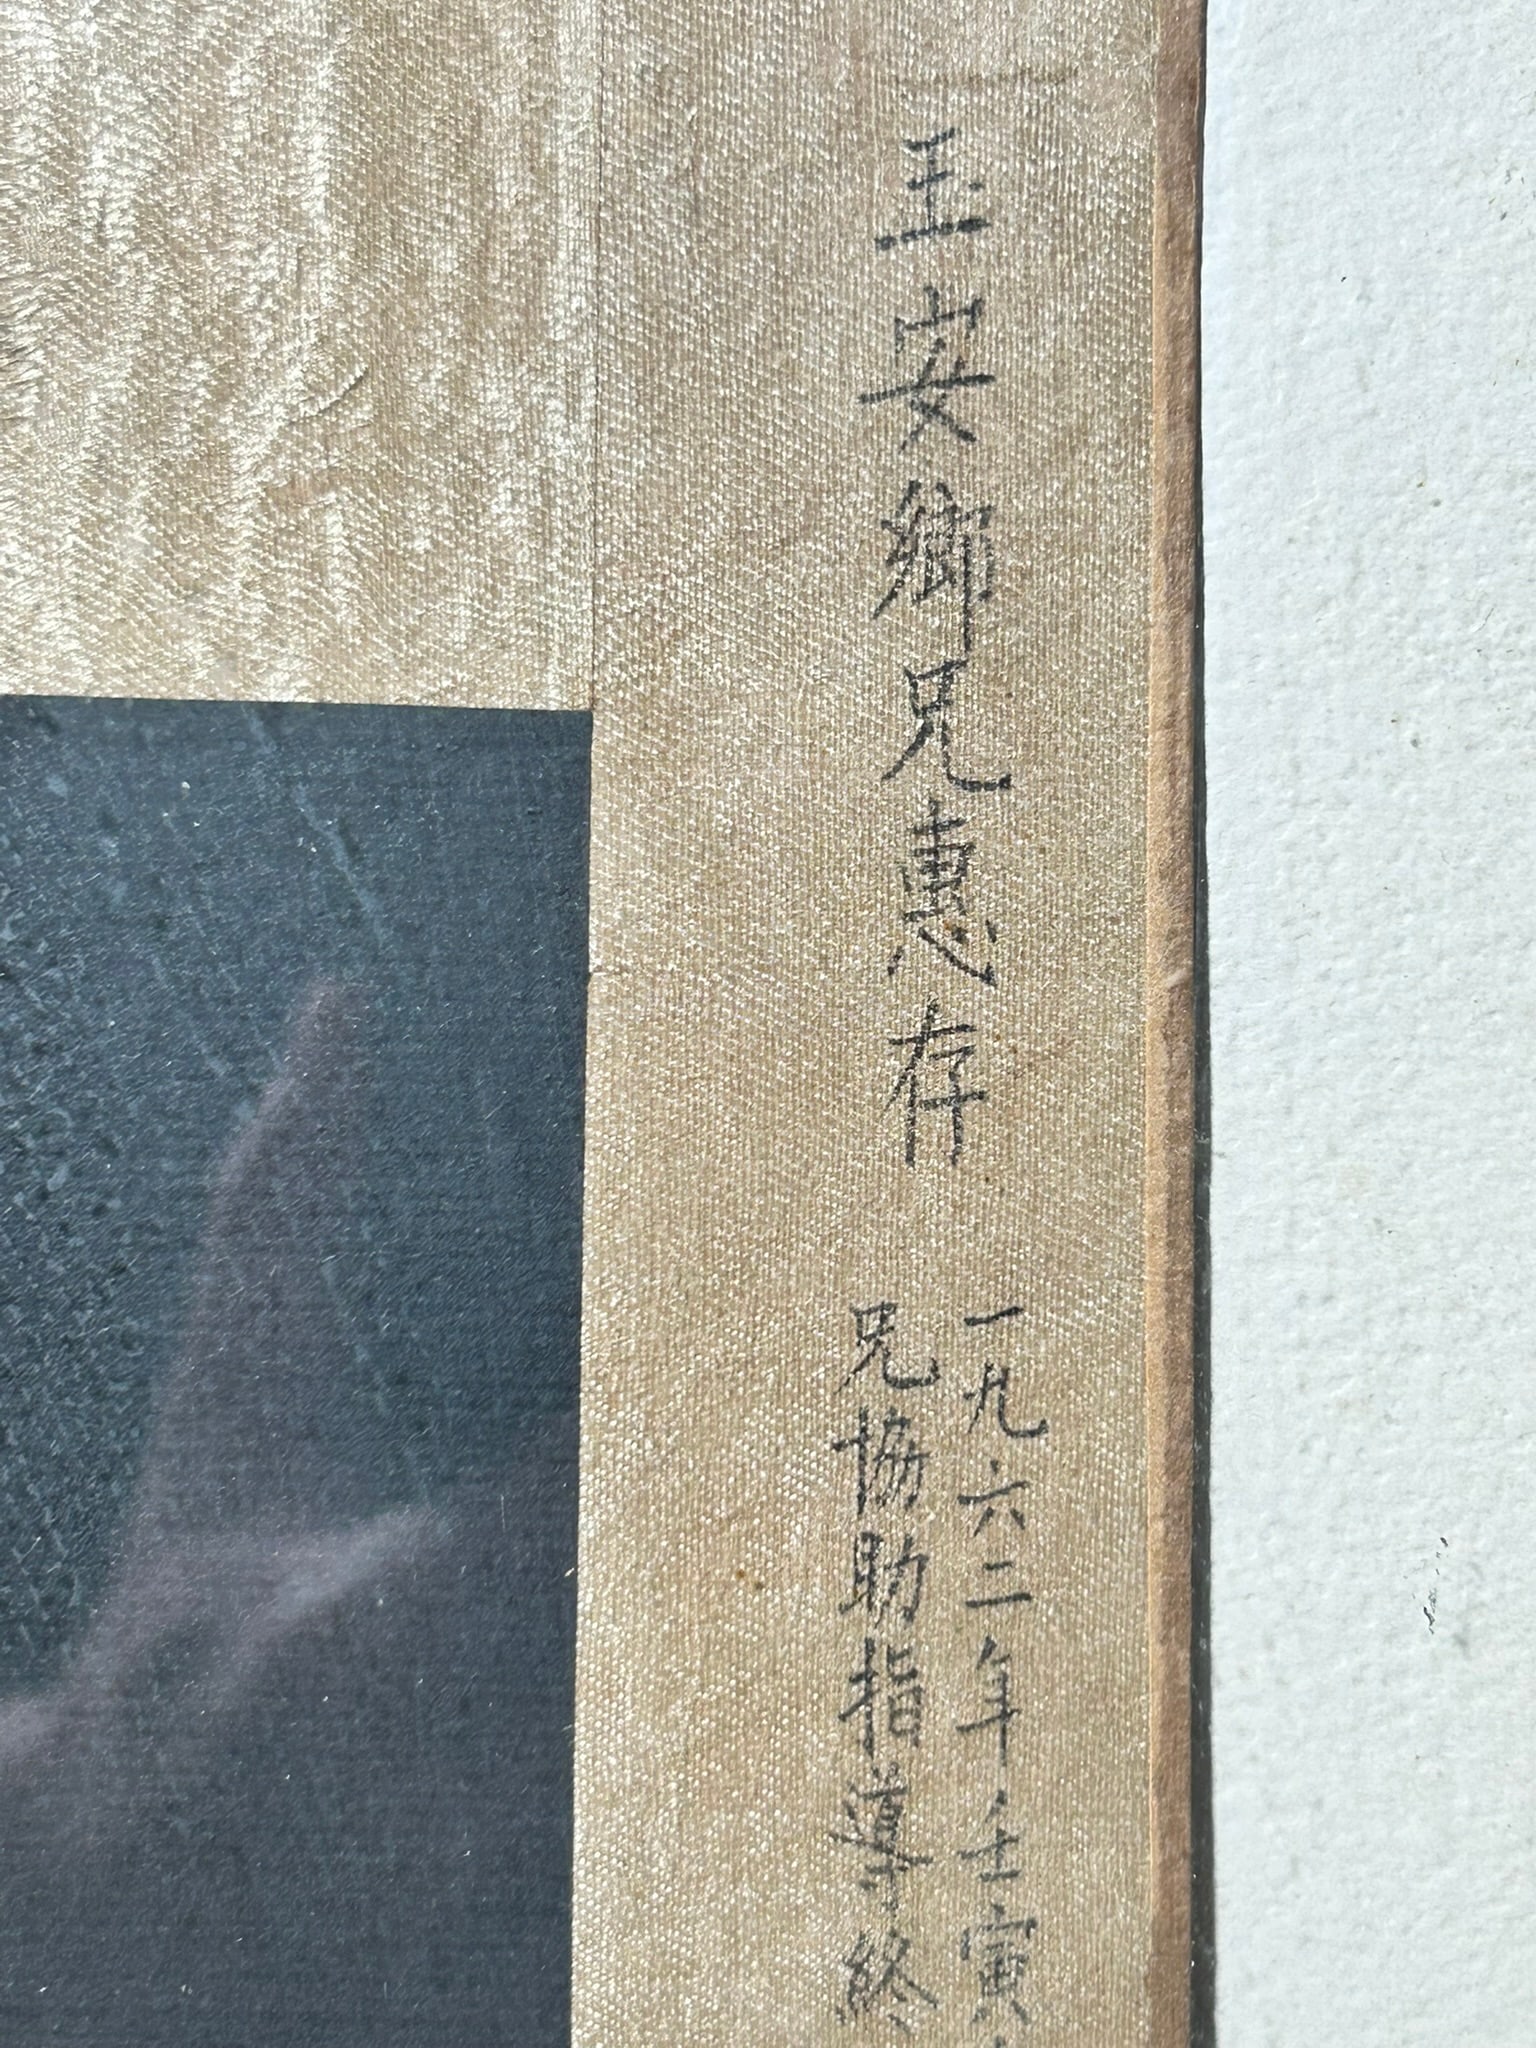 玉安鄉兄惠存
一九六二年壬寅
兄協助指導終